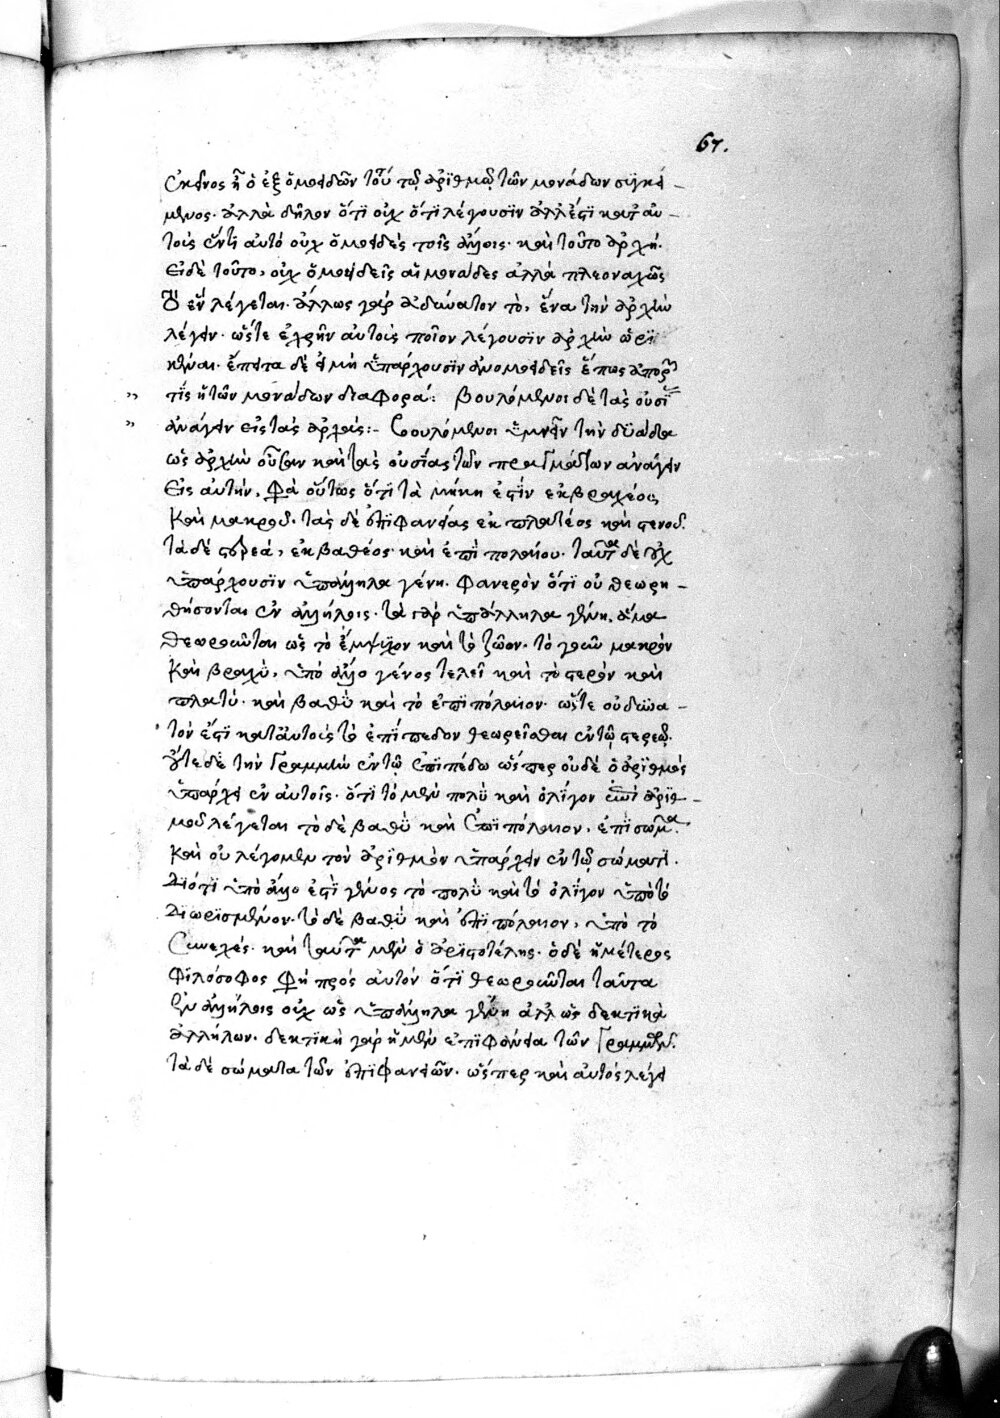 67.
ἐκεῖνος ἢ ὁ ἐξ ὁμοειδῶν τοῦ τῷ ἀριθμῷ τῶν μονάδων συγκεί-
μενος. ἀλλὰ δῆλον ὅτι οὐχ ὅτι λέγουσιν ἀλλ' ἔστι κατ' αὐ-
τοὺς ἕν τι αὐτὸ οὐχ ὁμοειδὲς τοῖς ἄλλοις. καὶ τοῦτο ἀρχή.
εἰ δὲ τοῦτο, οὐχ ὁμοειδεῖς αἱ μονάδες ἀλλὰ πλεοναχῶς
τὸ ἓν λέγεται. ἄλλως γὰρ ἀδύνατον τὸ, ἕνα τὴν ἀρχὴν
λέγειν. ὥστε ἐχρῆν αὐτοὺς ποῖον λέγουσιν ἀρχὴν
ἔπειτα δὲ εἰ μὴ ὑπάρχουσιν ἀνομοειδεῖς
τίς ἡ τῶν μονάδων διαφορά: βουλόμενοι δὲ τὰς οὐσί
ἀνάγειν εἰς τὰς ἀρχάς:- βουλόμενοι τὴν δυάδα
ὡς ἀρχὴν οὖσαν καὶ τὰς οὐσίας τῶν πραγμάτων ἀνάγειν
εἰς αὐτὴν, φασὶ οὕτως ὅτι τὰ μήκη ἐστὶν ἐκ βραχέος
καὶ μακροῦ. τὰς δὲ ἐπιφανείας ἐκ πλατέος καὶ στενοῦ.
τὰ δὲ στερεά, ἐκ βαθέος καὶ ἐπιπολαίου. ταῦτα δὲ οὐχ
ὑπάρχουσιν ὑπάλληλα γένη. φανερὸν ὅτι οὐ θεωρη-
θήσονται ἐν ἀλλήλοις. τὰ γὰρ ὑπάλληλα γένη, ἅμα
θεωροῦνται ὡς τὸ ἔμψυχον καὶ τὸ ζῷον. τὸ γοῦν μακρὸν
καὶ βραχὺ, ὑπὸ ἄλλο γένος τελεῖ καὶ τὸ στερὸν καὶ
πλατύ. καὶ βαθὺ καὶ τὸ ἐπιπόλαιον. ὥστε οὐ δυνα-
τόν ἐστι κατ' αὐτοὺς τὸ ἐπίπεδον θεωρεῖσθαι ἐν τῷ στερεῷ.
οὔτε δὲ τὴν γραμμὴν ἐν τῷ ἐπιπέδω ὥσπερ οὐδὲ ὁ ἀριθμὸς
ὑπάρχει ἐν αὐτοῖς. ὅτι τὸ μὲν πολὺ καὶ ὀλίγον ἐπὶ ἀριθ-
μοῦ λέγεται τὸ δὲ βαθὺ καὶ ἐπιπόλαιον, ἐπὶ σώμα.
καὶ οὐ λέγομεν τὸν ἀριθμὸν ὑπάρχειν ἐν τῷ σώματι.
διότι ὑπὸ ἄλλο ἐστὶ γένος τὸ πολὺ καὶ τὸ ὀλίγον ὑπὸ τὸ
διωρισμένον. τὸ δὲ βαθὺ καὶ ἐπιπόλαιον, ὑπὸ τὸ
συνεχές. καὶ ταῦτα μὲν ὁ ἀριστοτέλης. ὁ δὲ ἡμέτερος
φιλόσοφος φησὶ πρὸς αὐτὸν ὅτι θεωροῦνται ταῦτα
ἐν ἀλλήλοις οὐχ ὡς ὑπάλληλα γένη ἀλλ' ὡς δεκτικὰ
ἀλλήλων. δεκτικὴ γὰρ ἡ μὲν ἐπιφάνεια τῶν γραμμῶν.
τὰ δὲ σώματα τῶν ἐπιφανειῶν. ὥσπερ καὶ αὐτὸς λέγει